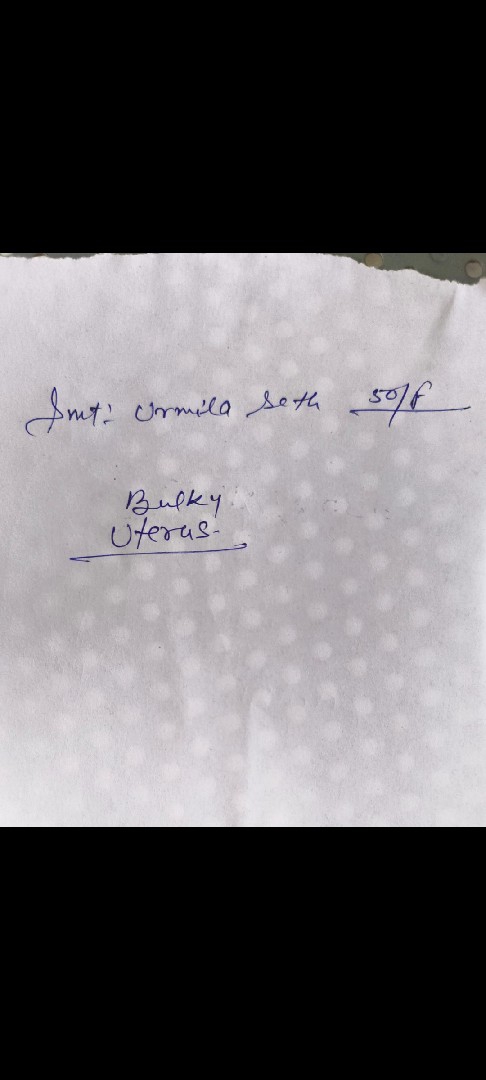 Smt: Urmila Seth 50/F
Bulky
Uterus.